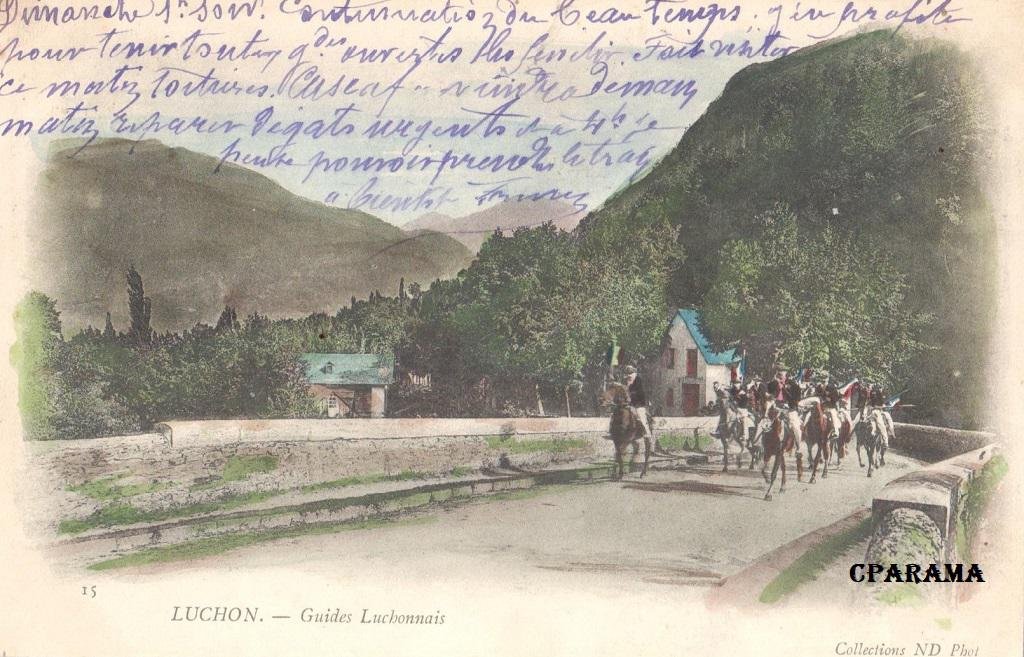 Dimanche 1r Continuation du beau temps. j'en profite
pour tenir toutes gdes ouvertes Fait visiter
ce matin toitures. demain
matin réparer dégats urgents et à 4h je
pense pouvoir prendre le train
à bientôt
15
LUCHON. — Guides Luchonnais
CPARAMA
Collections ND Phot